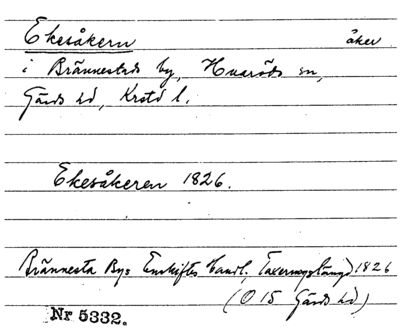 Ekesåkern åker
i Brännestads by, Huaröds sn,
Gärds hd, Krstd l.
Ekesåkeren 1826.
Brännesta Bys Enskiftes Handl, Taxeringslängd 1826
(O 15 Gärds hd)
Nr 5332.